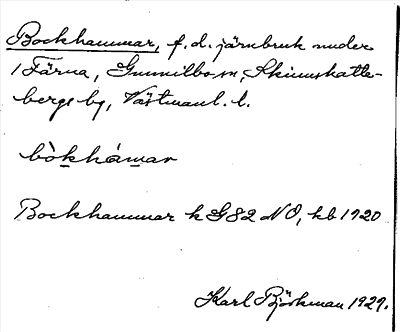 Bockhammar, f. d. järnbruk under
1 Färna, Gunnilbo sn, Skinnskatte-
bergs bg, Västmanl. l.
bòkhámar
Bockhammar k G82 NO, hb 1920
Karl Björkman 1929.